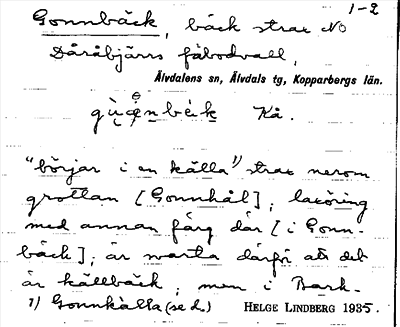 1-2
Gonnbäck, bäck strax NO
Dåråbjärns fäbodvall,
Älvdalens sn, Älvdals tg, Kopparbergs län.
Kå.
"börjar i en källa¹⁾ strax nerom
grottan [Gonnhål]; laxöring
med annan färg där [i Gonn-
bäck]; är svarta därför att det
är källbäck; men i Bark-
1) Gonnkälla (se d.) HELGE LINDBERG 1935.